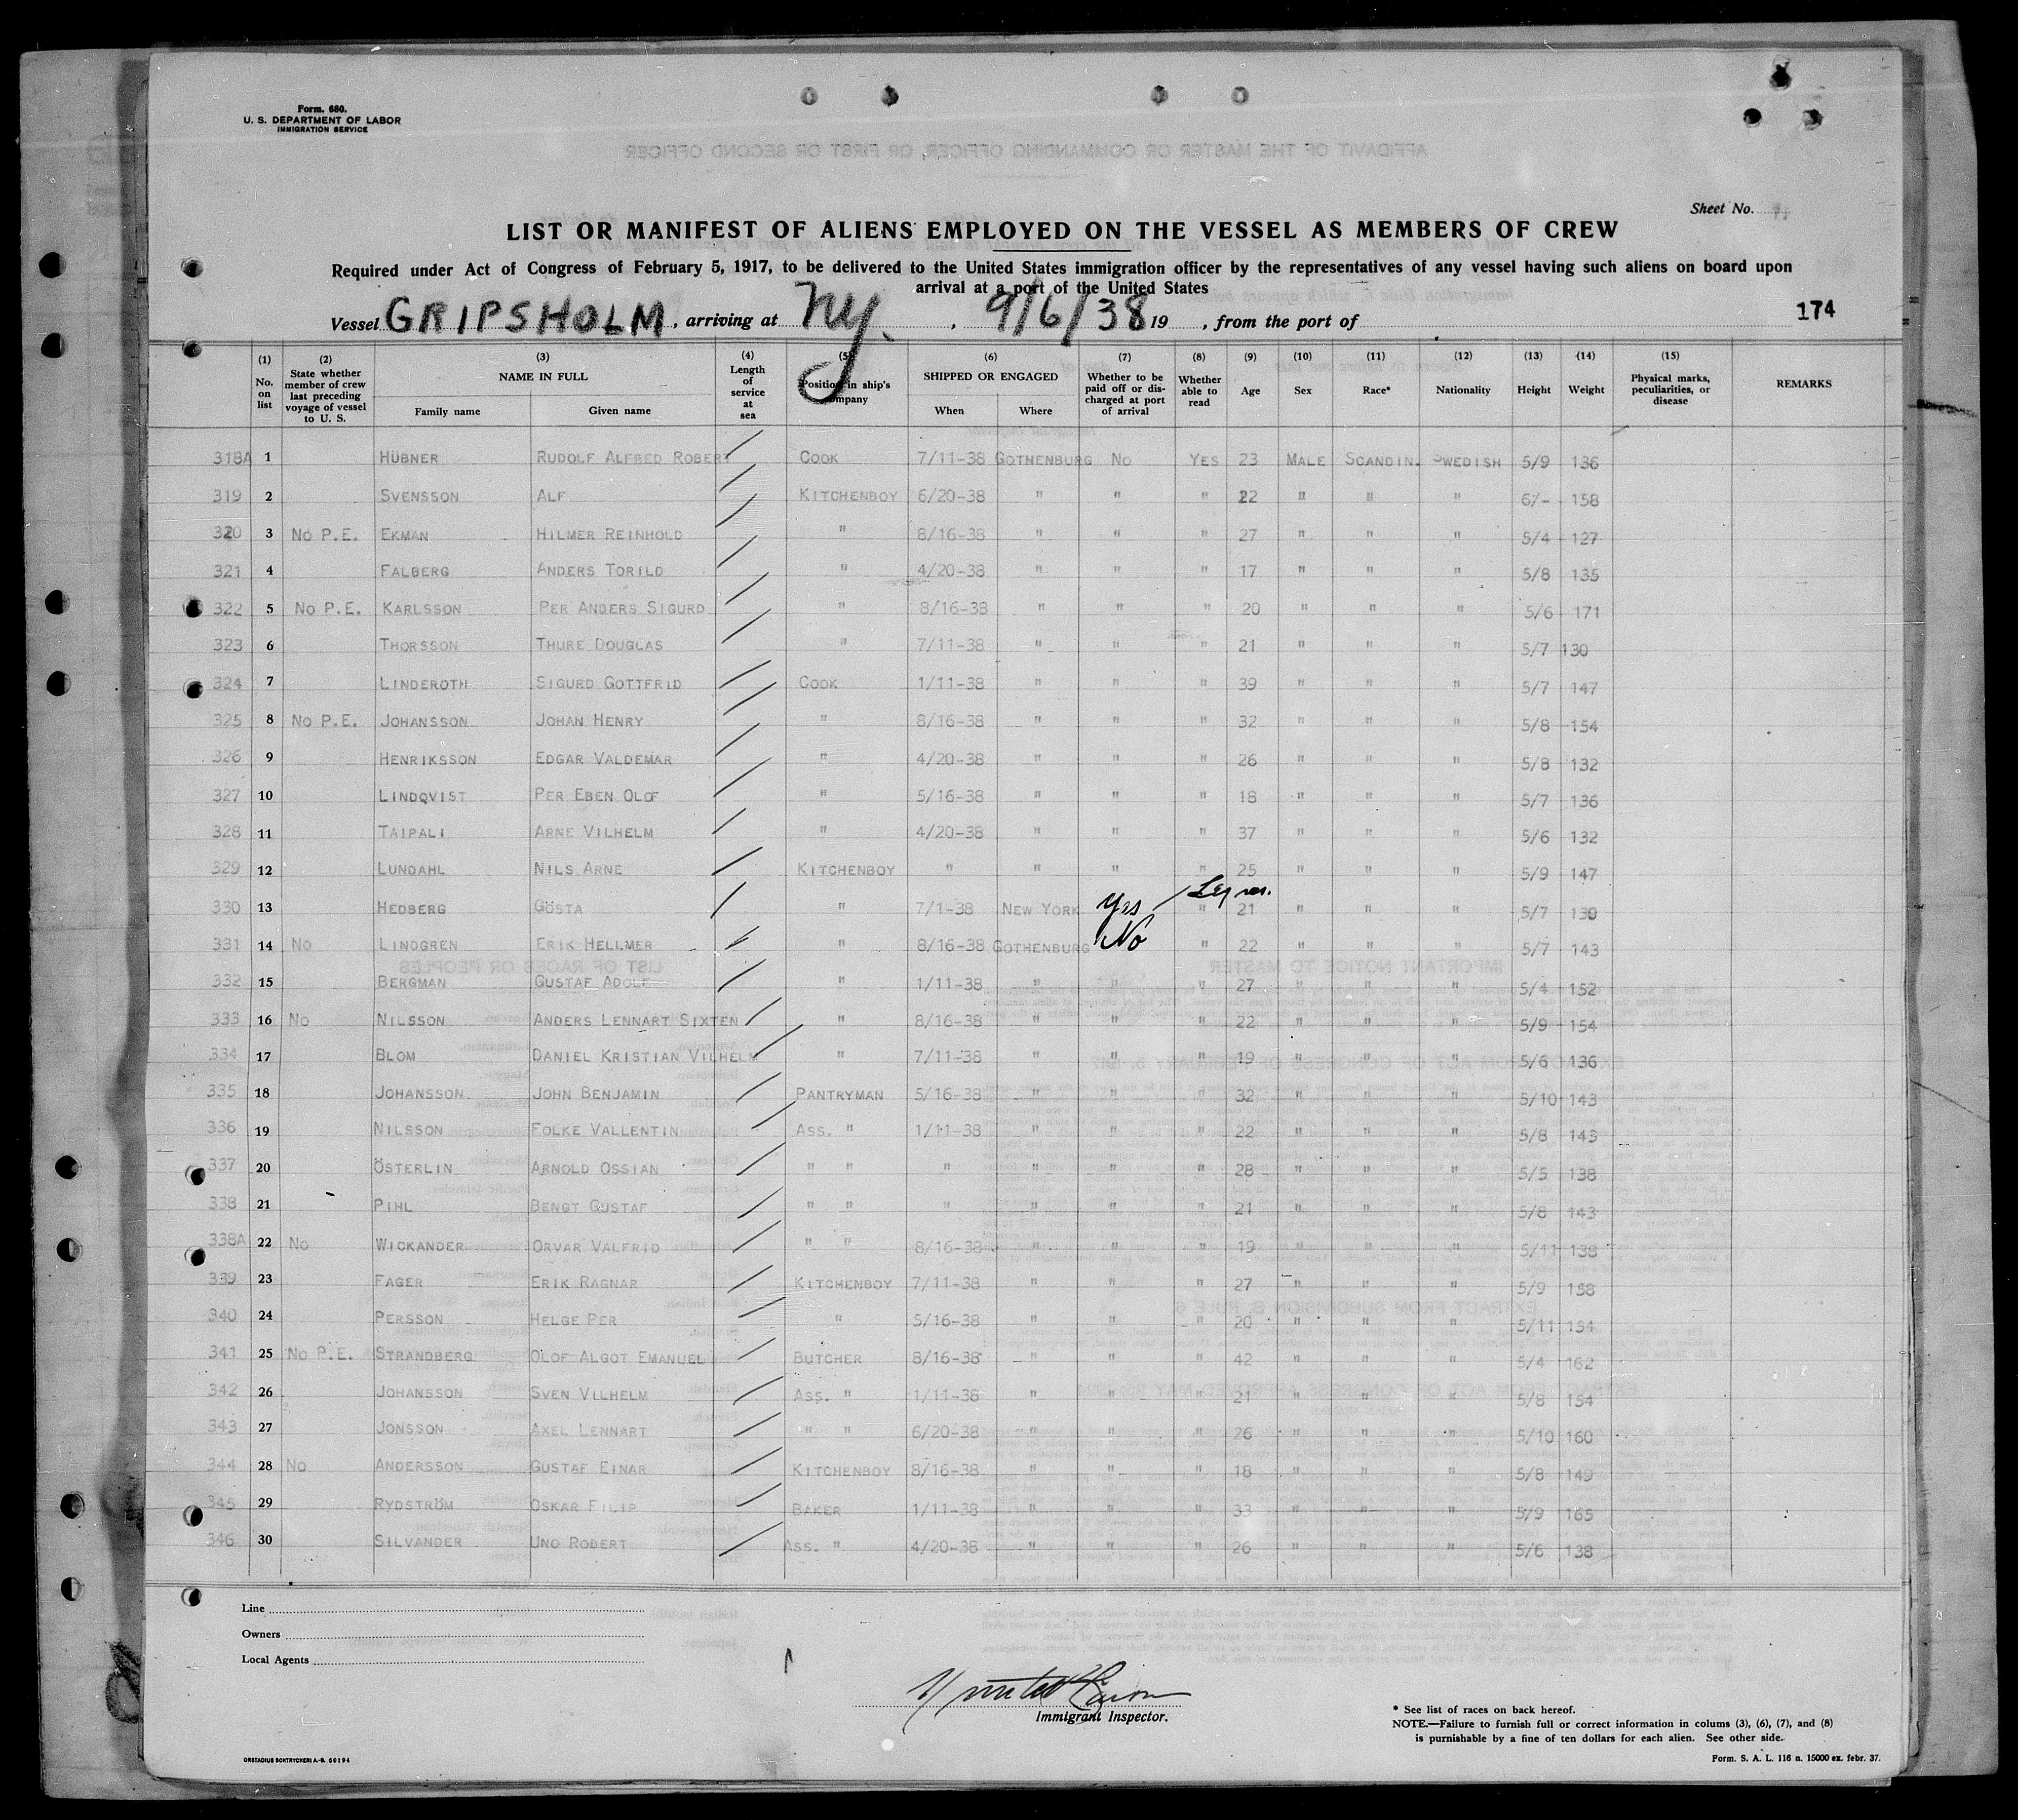 Form. 680.
U. S. DEPARTMENT OF LABOR
IMMIGRATION SERVICE
Sheet No.
LIST OR MANIFEST OF ALIENS EMPLOYED ON THE VESSEL AS MEMBERS OF CREW
Required under Act of Congress of February 5, 1917, to be delivered to the United States immigration officer by the representatives of any vessel having such aliens on board upon
arrival at a port of the United States
Vessel GRIPSHOLM, arriving at Ny., 9/6/38 19 , from the port of 174
(1) No. on list (2) State whether member of crew last preceding voyage of vessel to U. S. (3) NAME IN FULL Family name Given name (4) Length of service at sea (5) Position in ship's company (6) SHIPPED OR ENGAGED When Where (7) Whether to be paid off or discharged at port of arrival (8) Whether able to read (9) Age (10) Sex (11) Race* (12) Nationality (13) Height (14) Weight (15) Physical marks, peculiarities, or disease REMARKS
318A 1 HÜBNER RUDOLF ALFRED ROBERT / COOK 7/11-38 GOTHENBURG NO YES 23 MALE SCANDIN. SWEDISH 5/9 136
319 2 SVENSSON ALF / KITCHENBOY 6/20-38 " " " 22 " " " 6/- 158
320 3 NO P.E. EKMAN HILMER REINHOLD / " 8/16-38 " " " 27 " " " 5/4 127
321 4 FALBERG ANDERS TORILD / " 4/20-38 " " " 17 " " " 5/8 135
322 5 NO P.E. KARLSSON PER ANDERS SIGURD / " 8/16-38 " " " 20 " " " 5/6 171
323 6 THORSSON THURE DOUGLAS / " 7/11-38 " " " 21 " " " 5/7 130
324 7 LINDEROTH SIGURD GOTTFRID / COOK 1/11-38 " " " 39 " " " 5/7 147
325 8 NO P.E. JOHANSSON JOHAN HENRY / " 8/16-38 " " " 32 " " " 5/8 154
326 9 HENRIKSSON EDGAR VALDEMAR / " 4/20-38 " " " 26 " " " 5/8 132
327 10 LINDQVIST PER EBEN OLOF / " 5/16-38 " " " 18 " " " 5/7 136
328 11 TAIPALI ARNE VILHELM / " 4/20-38 " " " 37 " " " 5/6 132
329 12 LUNDAHL NILS ARNE / KITCHENBOY " " " " 25 " " " 5/9 147
330 13 HEDBERG GÖSTA / " 7/1-38 NEW YORK Yes " 21 " " " 5/7 130
331 14 NO LINDGREN ERIK HELLMER / " 8/16-38 GOTHENBURG No " 22 " " " 5/7 143
332 15 BERGMAN GUSTAF ADOLF / " 1/11-38 " " " 27 " " " 5/4 152
333 16 NO NILSSON ANDERS LENNART SIXTEN / " 8/16-38 " " " 22 " " " 5/9 154
334 17 BLOM DANIEL KRISTIAN VILHELM / " 7/11-38 " " " 19 " " " 5/6 136
335 18 JOHANSSON JOHN BENJAMIN / PANTRYMAN 5/16-38 " " " 32 " " " 5/10 143
336 19 NILSSON FOLKE VALLENTIN / ASS. " 1/11-38 " " " 22 " " " 5/8 143
337 20 ÖSTERLIN ARNOLD OSSIAN / " " " " " " 28 " " " 5/5 138
338 21 PIHL BENGT GUSTAF / " " " " " " 21 " " " 5/8 143
338A 22 NO WICKANDER ORVAR VALFRID / " " 8/16-38 " " " 19 " " " 5/11 138
339 23 FAGER ERIK RAGNAR / KITCHENBOY 7/11-38 " " " 27 " " " 5/9 158
340 24 PERSSON HELGE PER / " 5/16-38 " " " 20 " " " 5/11 154
341 25 NO P.E. STRANDBERG OLOF ALGOT EMANUEL / BUTCHER 8/16-38 " " " 42 " " " 5/4 162
342 26 JOHANSSON SVEN VILHELM / ASS. " 1/11-38 " " " 21 " " " 5/8 154
343 27 JONSSON AXEL LENNART / " " 6/20-38 " " " 26 " " " 5/10 160
344 28 NO ANDERSSON GUSTAF EINAR / KITCHENBOY 8/16-38 " " " 18 " " " 5/8 149
345 29 RYDSTRÖM OSKAR FILIP / BAKER 1/11-38 " " " 33 " " " 5/9 165
346 30 SILVANDER UNO ROBERT / ASS. " 4/20-38 " " " 26 " " " 5/6 138
Line
Owners
Local Agents
Immigrant Inspector.
* See list of races on back hereof.
NOTE.—Failure to furnish full or correct information in colums (3), (6), (7), and (8)
is punishable by a fine of ten dollars for each alien. See other side.
ORSTADIUS BOKTRYCKERI A.-B. 60194
Form. S. A. L. 116 n. 15000 ex. febr. 37.